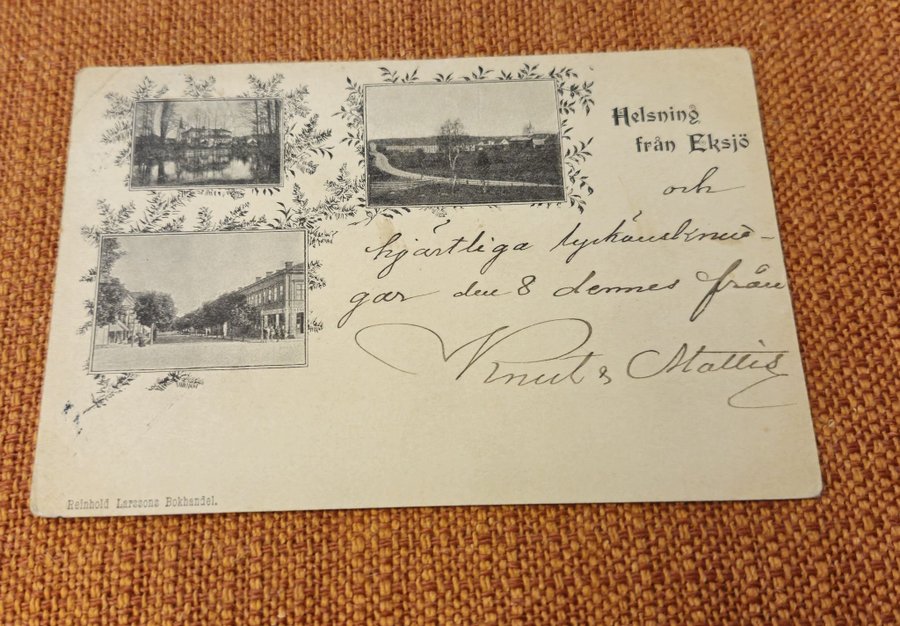 Helsning
från Eksjö
och
hjärtliga lyckönsknin-
gar den 8 dennes från
Knut & Mattis
Reinhold Larssons Bokhandel.